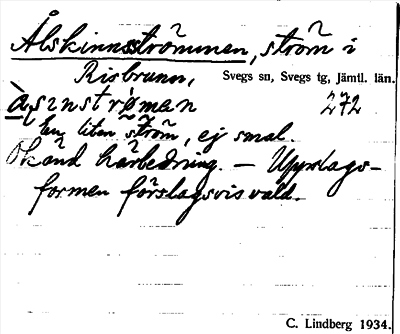 Ålskinnsströmmen, ström i
Risbrunn, Svegs sn, Svegs tg, Jämtl. län.
272
En liten ström, ej smal.
Okänd härledning. – Uppslags-
formen förslagsvis vald.
C. Lindberg 1934.